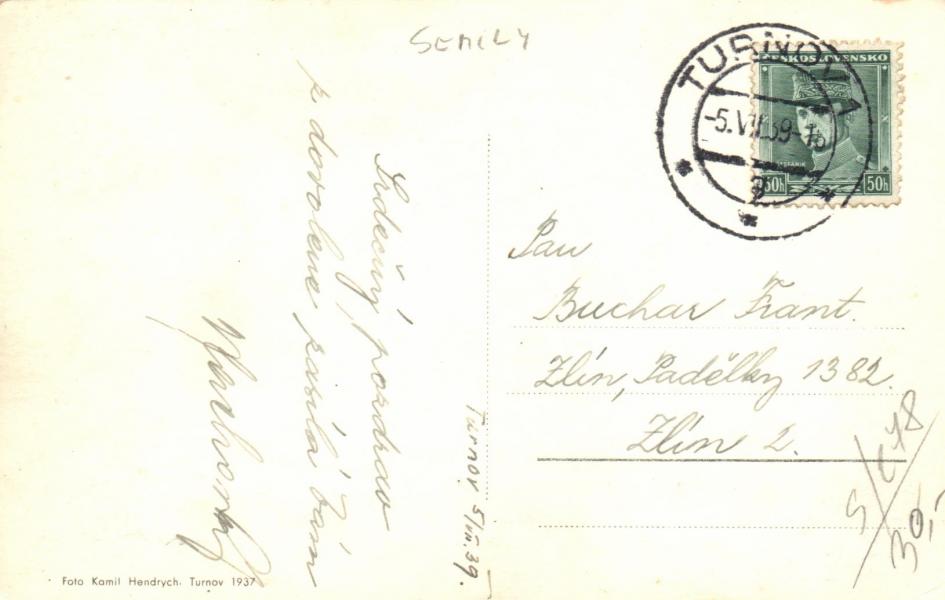 SEMILY
TURNOV 1
-5.VII.39-16
ČESKOSLOVENSKO
ŠTEFÁNIK
50h 50h
Srdečný pozdrav
z dovolené zasílá Vám
Turnov 5/VII.39.
Pan
Buchar Frant.
Zlín, Padělky 1382.
Zlín 2.
S/C48
30,-
Foto Kamil Hendrych, Turnov 1937